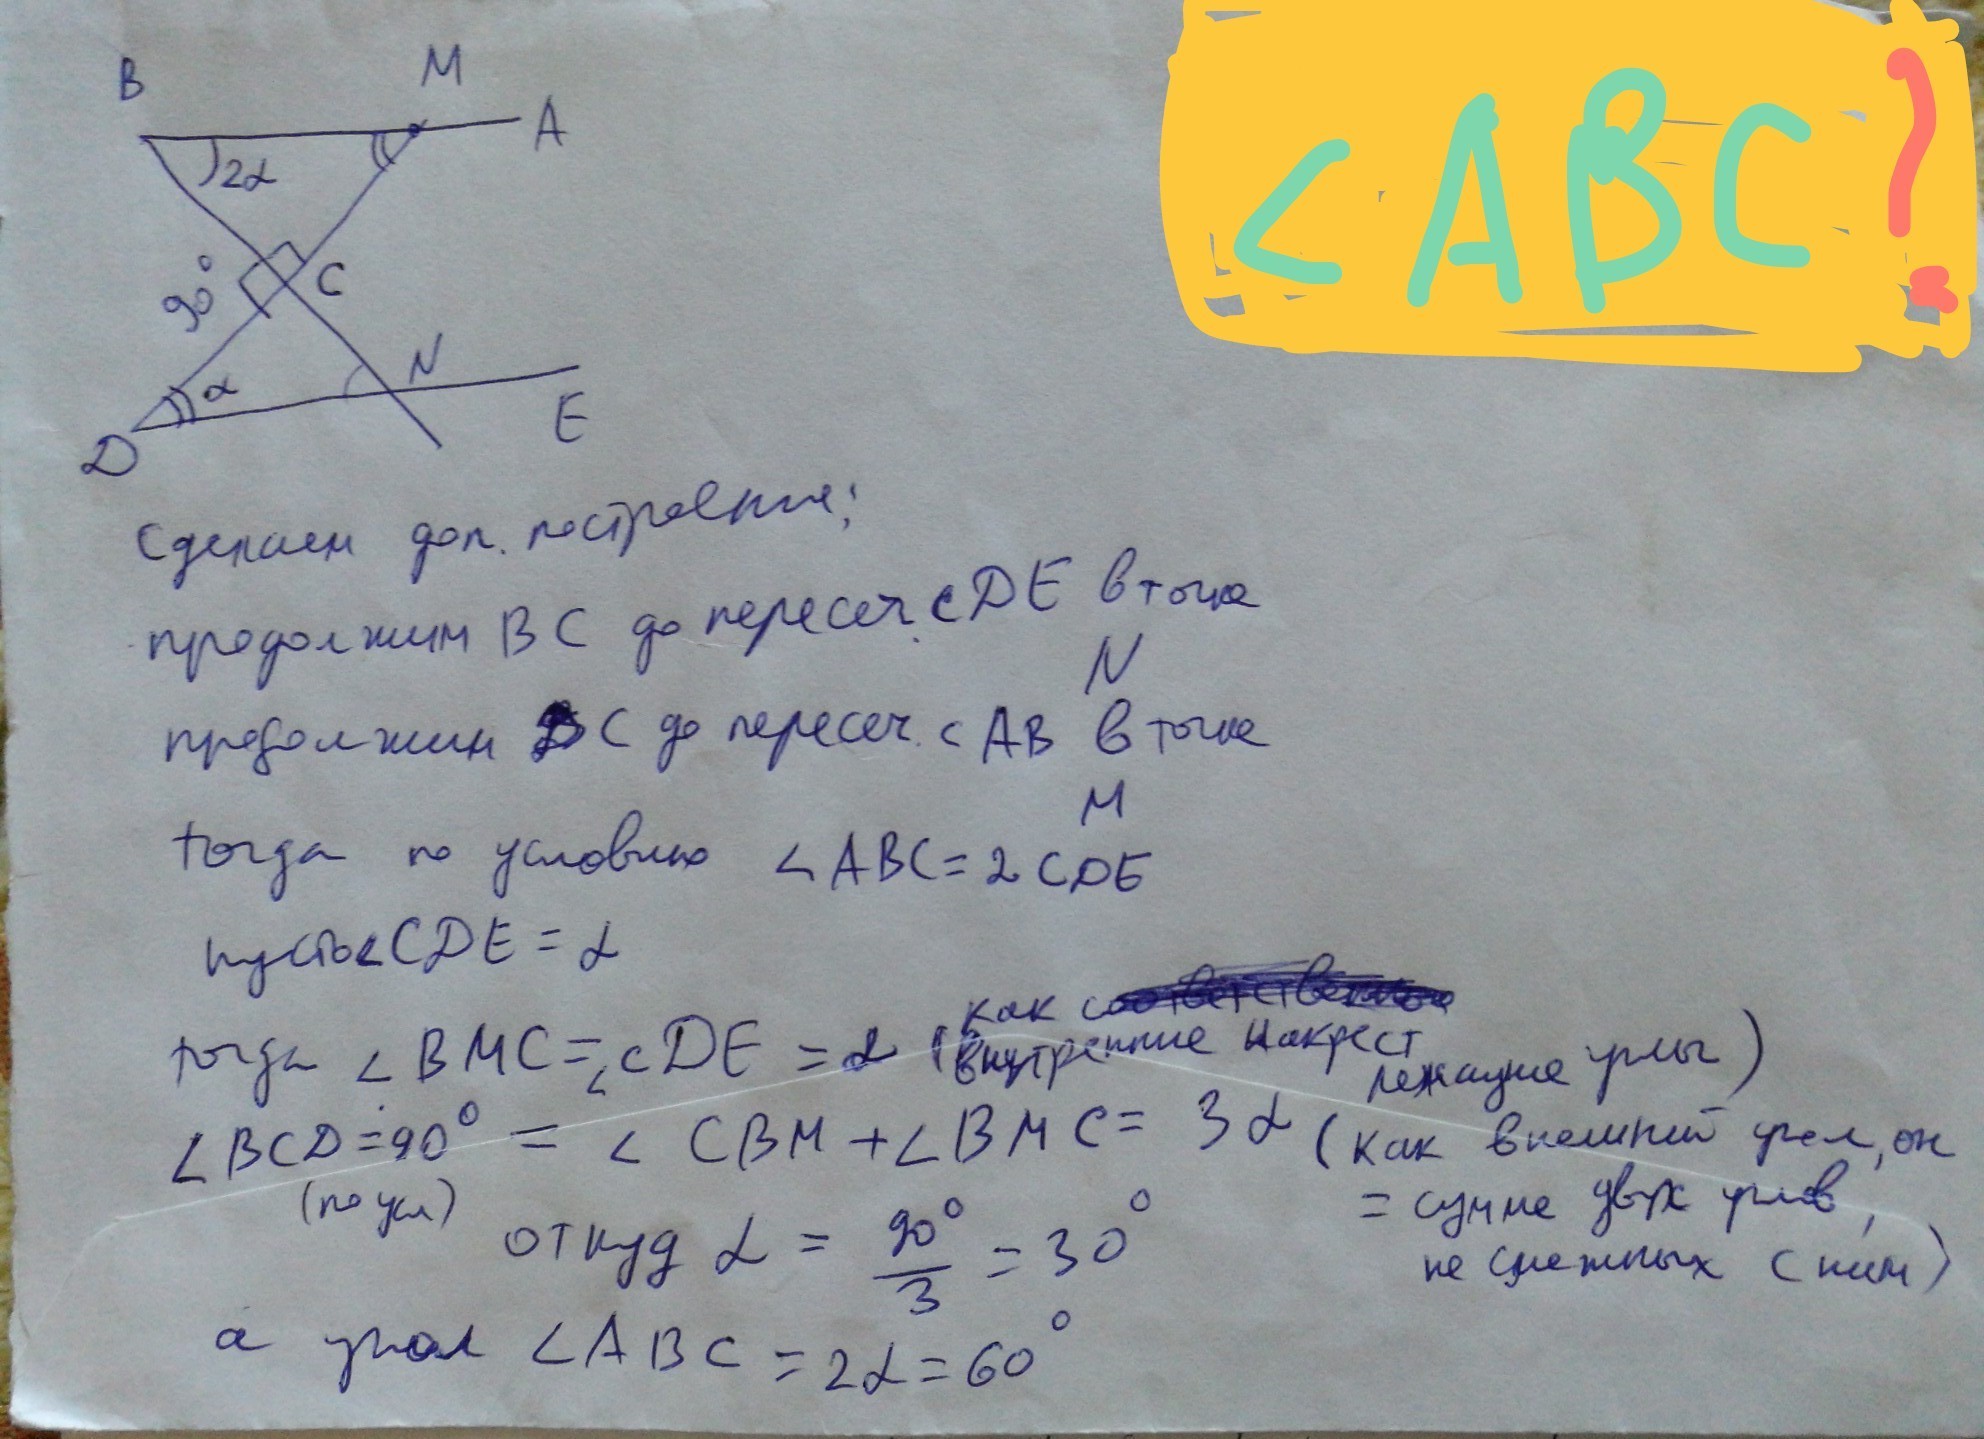 B M A
2α
90° C
α N
D E
<ABC?
Сделаем доп. построение:
продолжим BC до пересеч. с DE в точке
N
продолжим DC до пересеч. с AB в точке
M
тогда по условию ∠ABC = 2 CDE
пусть ∠CDE = α
тогда ∠BMC = ∠CDE = α (как внутренние накрест лежащие углы)
∠BCD = 90° = ∠CBM + ∠BMC = 3α (как внешний угол, он
(по усл) = сумме двух углов,
не смежных с ним)
откуд α = 90°/3 = 30°
а угол ∠ABC = 2α = 60°